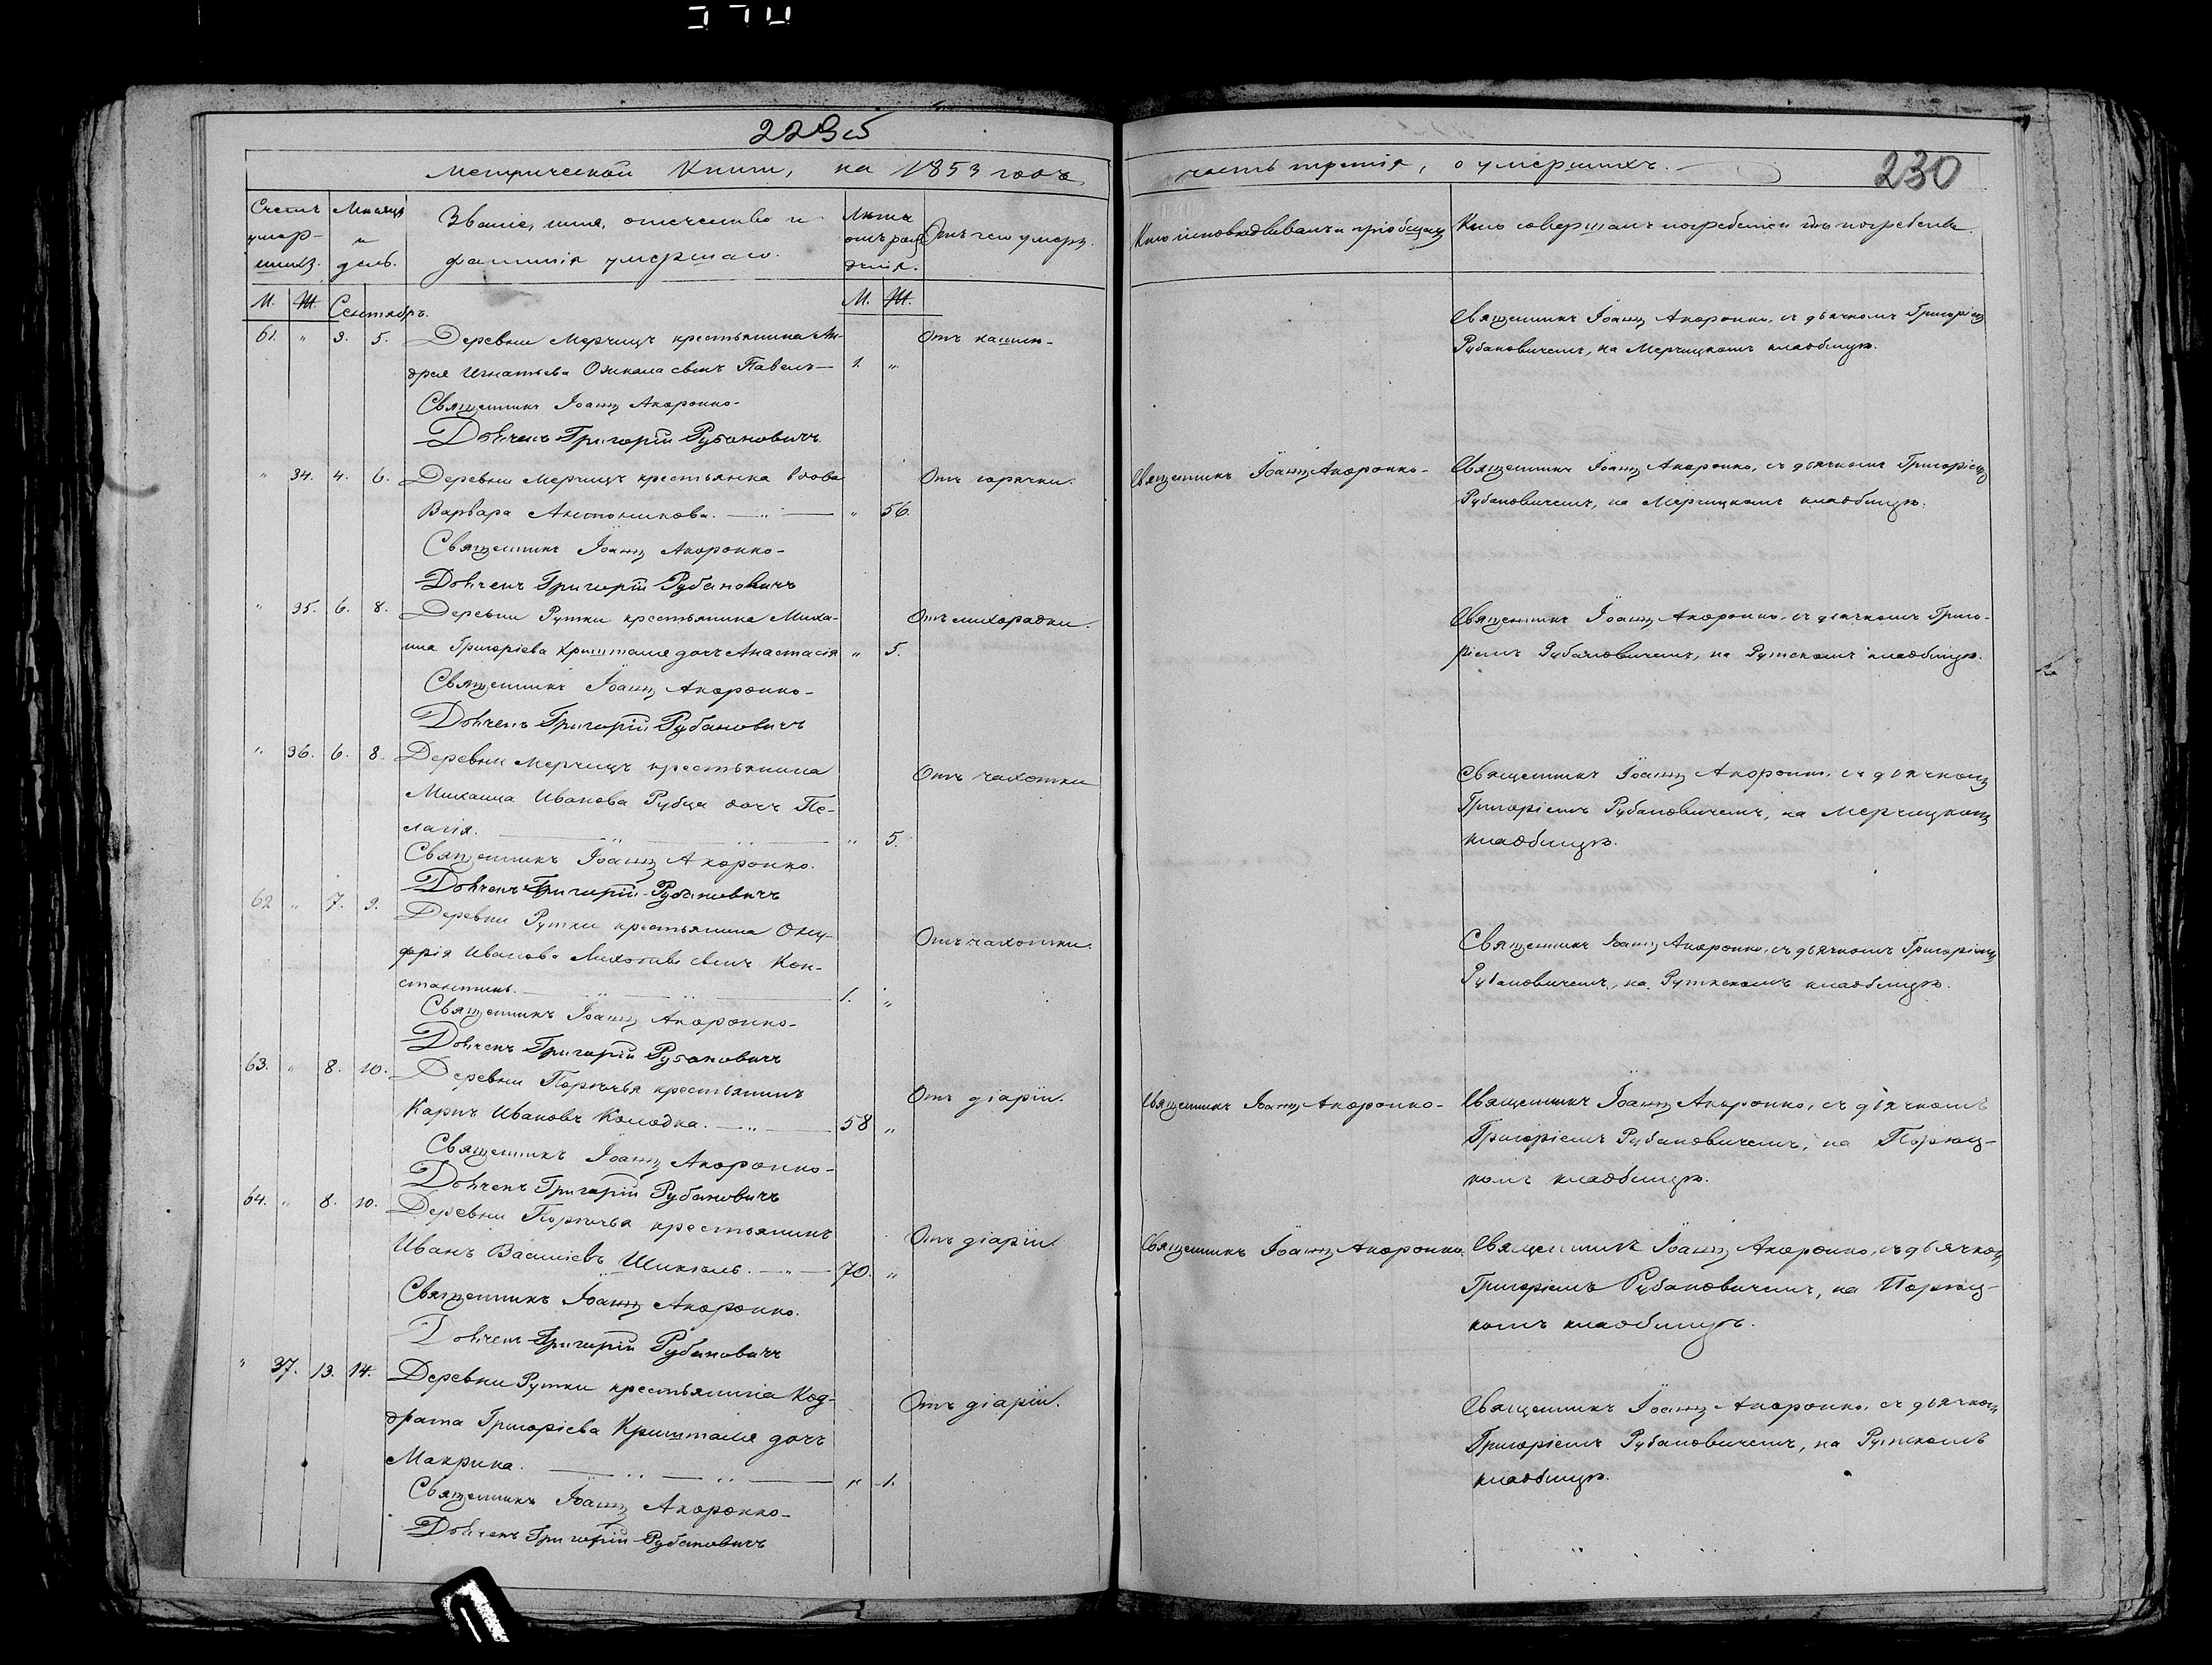 229об
Метрической Книги, на 1853 годъ
часть третія, о умершихъ.
230
Счетъ умер- шихъ.
Мѣсяцъ и день.
Званіе, имя, отечество и
фамилія умершаго.
Лѣта отъ рож денія.
Отъ чего умеръ.
Кто исповѣдывалъ и пріобщалъ
Кто совершалъ погребеніе и гдѣ погребены.
М. Ж. Сентябрь. М. Ж.
61. " 3. 5. Деревни Мерчицъ крестьянина Ан- Отъ кашлю-
дрея Игнатьева сынъ Павелъ— 1. "
Священникъ Іоаннъ
Дьячекъ Григорій Рубановичъ
Священникъ Іоаннъ съ дьячкомъ Григоріемъ
Рубановичемъ, на Мерчицкомъ кладбищѣ.
" 34. 4. 6. Деревни Мерчицъ крестьянка вдова Отъ горячки.
Варвара Антоникова. " 56.
Священникъ Іоаннъ
Дьячекъ Григорій Рубановичъ
Священникъ Іоаннъ
Священникъ Іоаннъ съ дьячкомъ Григоріемъ
Рубановичемъ, на Мерчицкомъ кладбищѣ.
" 35. 6. 8. Деревни Рутки крестьянина Миха- Отъ лихорадки.
ила Григорієва Кришталя дочь Анастасія " 5.
Священникъ Іоаннъ
Дьячекъ Григорій Рубановичъ
Священникъ Іоаннъ съ дьячкомъ Григо-
ріемъ Рубановичемъ, на Рутскомъ кладбищѣ.
" 36. 6. 8. Деревни Мерчицъ крестьянина Отъ чахотки
Михаила Иванова Рубца дочь Пе-
лагія. " 5.
Священникъ Іоаннъ
Дьячекъ Григорій Рубановичъ
Священникъ Іоаннъ съ дьячкомъ
Григоріемъ Рубановичемъ, на Мерчицкомъ
кладбищѣ.
62 " 7. 9. Деревни Рутки крестьянина Ону- Отъ чахотки.
фрія Иванова сынъ Кон-
стантинъ. 1. "
Священникъ Іоаннъ
Дьячекъ Григорій Рубановичъ
Священникъ Іоаннъ съ дьячкомъ Григоріемъ
Рубановичемъ, на Рутскомъ кладбищѣ.
63. " 8. 10. Деревни Порѣчья крестьянинъ Отъ діаріи.
Карпъ Ивановъ Колодка. 58 "
Священникъ Іоаннъ
Дьячекъ Григорій Рубановичъ
Священникъ Іоаннъ
Священникъ Іоаннъ съ дьячкомъ
Григоріемъ Рубановичемъ, на Порѣц-
комъ кладбищѣ.
64. " 8. 10. Деревни Порѣчья крестьянинъ Отъ діаріи.
Иванъ Василіевъ 70. "
Священникъ Іоаннъ
Дьячекъ Григорій Рубановичъ
Священникъ Іоаннъ
Священникъ Іоаннъ съ дьячкомъ
Григоріемъ Рубановичемъ, на Порѣц-
комъ кладбищѣ.
" 37. 13. 14. Деревни Рутки крестьянина Код- Отъ діаріи.
драта Григорієва Кришталя дочь
Макрина. " 1.
Священникъ Іоаннъ
Дьячекъ Григорій Рубановичъ
Священникъ Іоаннъ съ дьячкомъ
Григоріемъ Рубановичемъ, на Рутскомъ
кладбищѣ.